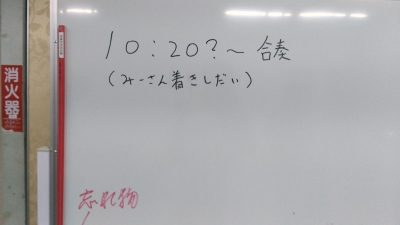 10:20?~ 合奏
(みーさん着きしだい)
消火器
忘れ物